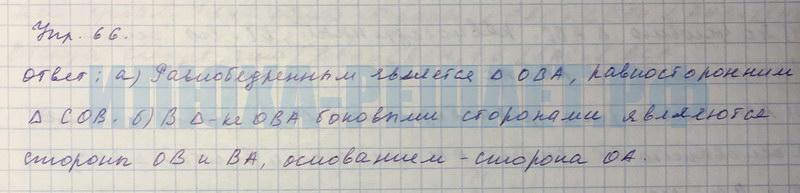 Упр. 66.
Ответ: а) Равнобедренным является Δ ОВА, равносторонним
Δ СОВ. б) В Δ-ке ОВА боковыми сторонами являются
стороны ОВ и ВА, основанием - сторона ОА.